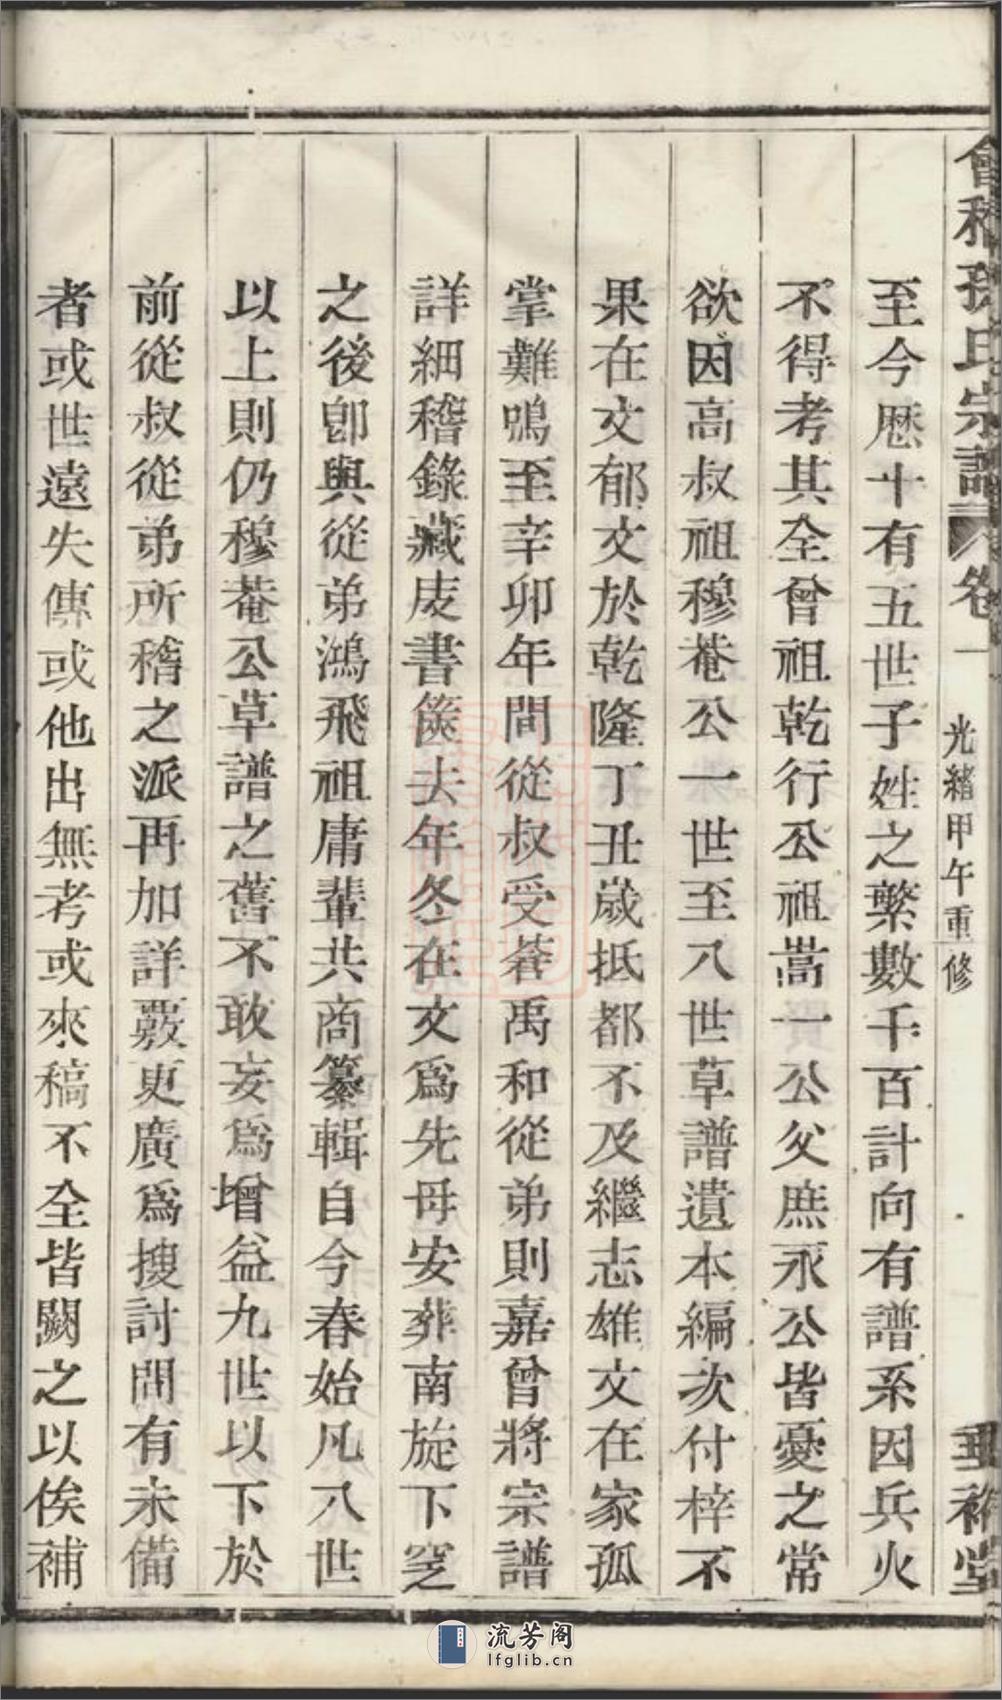 會稽孫氏宗譜 卷一 光緒甲午重修 垂裕堂
至今歷十有五世子姓之繁數千百計向有譜系因兵火
不得考其全曾祖乾行公祖嵩一公父庶永公皆憂之常
欲因高叔祖穆菴公一世至八世草譜遺本編次付梓不
果在文郁文於乾隆丁丑歲抵都不及繼志雄文在家孤
掌難鳴至辛卯年間從叔受菴禹和從弟則嘉曾將宗譜
詳細稽錄藏庋書篋去年冬在文爲先母安葬南旋下窆
之後卽與從弟鴻飛祖庸輩共商纂輯自今春始凡八世
以上則仍穆菴公草譜之舊不敢妄爲增益九世以下於
前從叔從弟所稽之派再加詳覈更廣爲搜討間有未備
者或世遠失傳或他出無考或來稿不全皆闕之以俟補
流芳阁
lfglib.cn